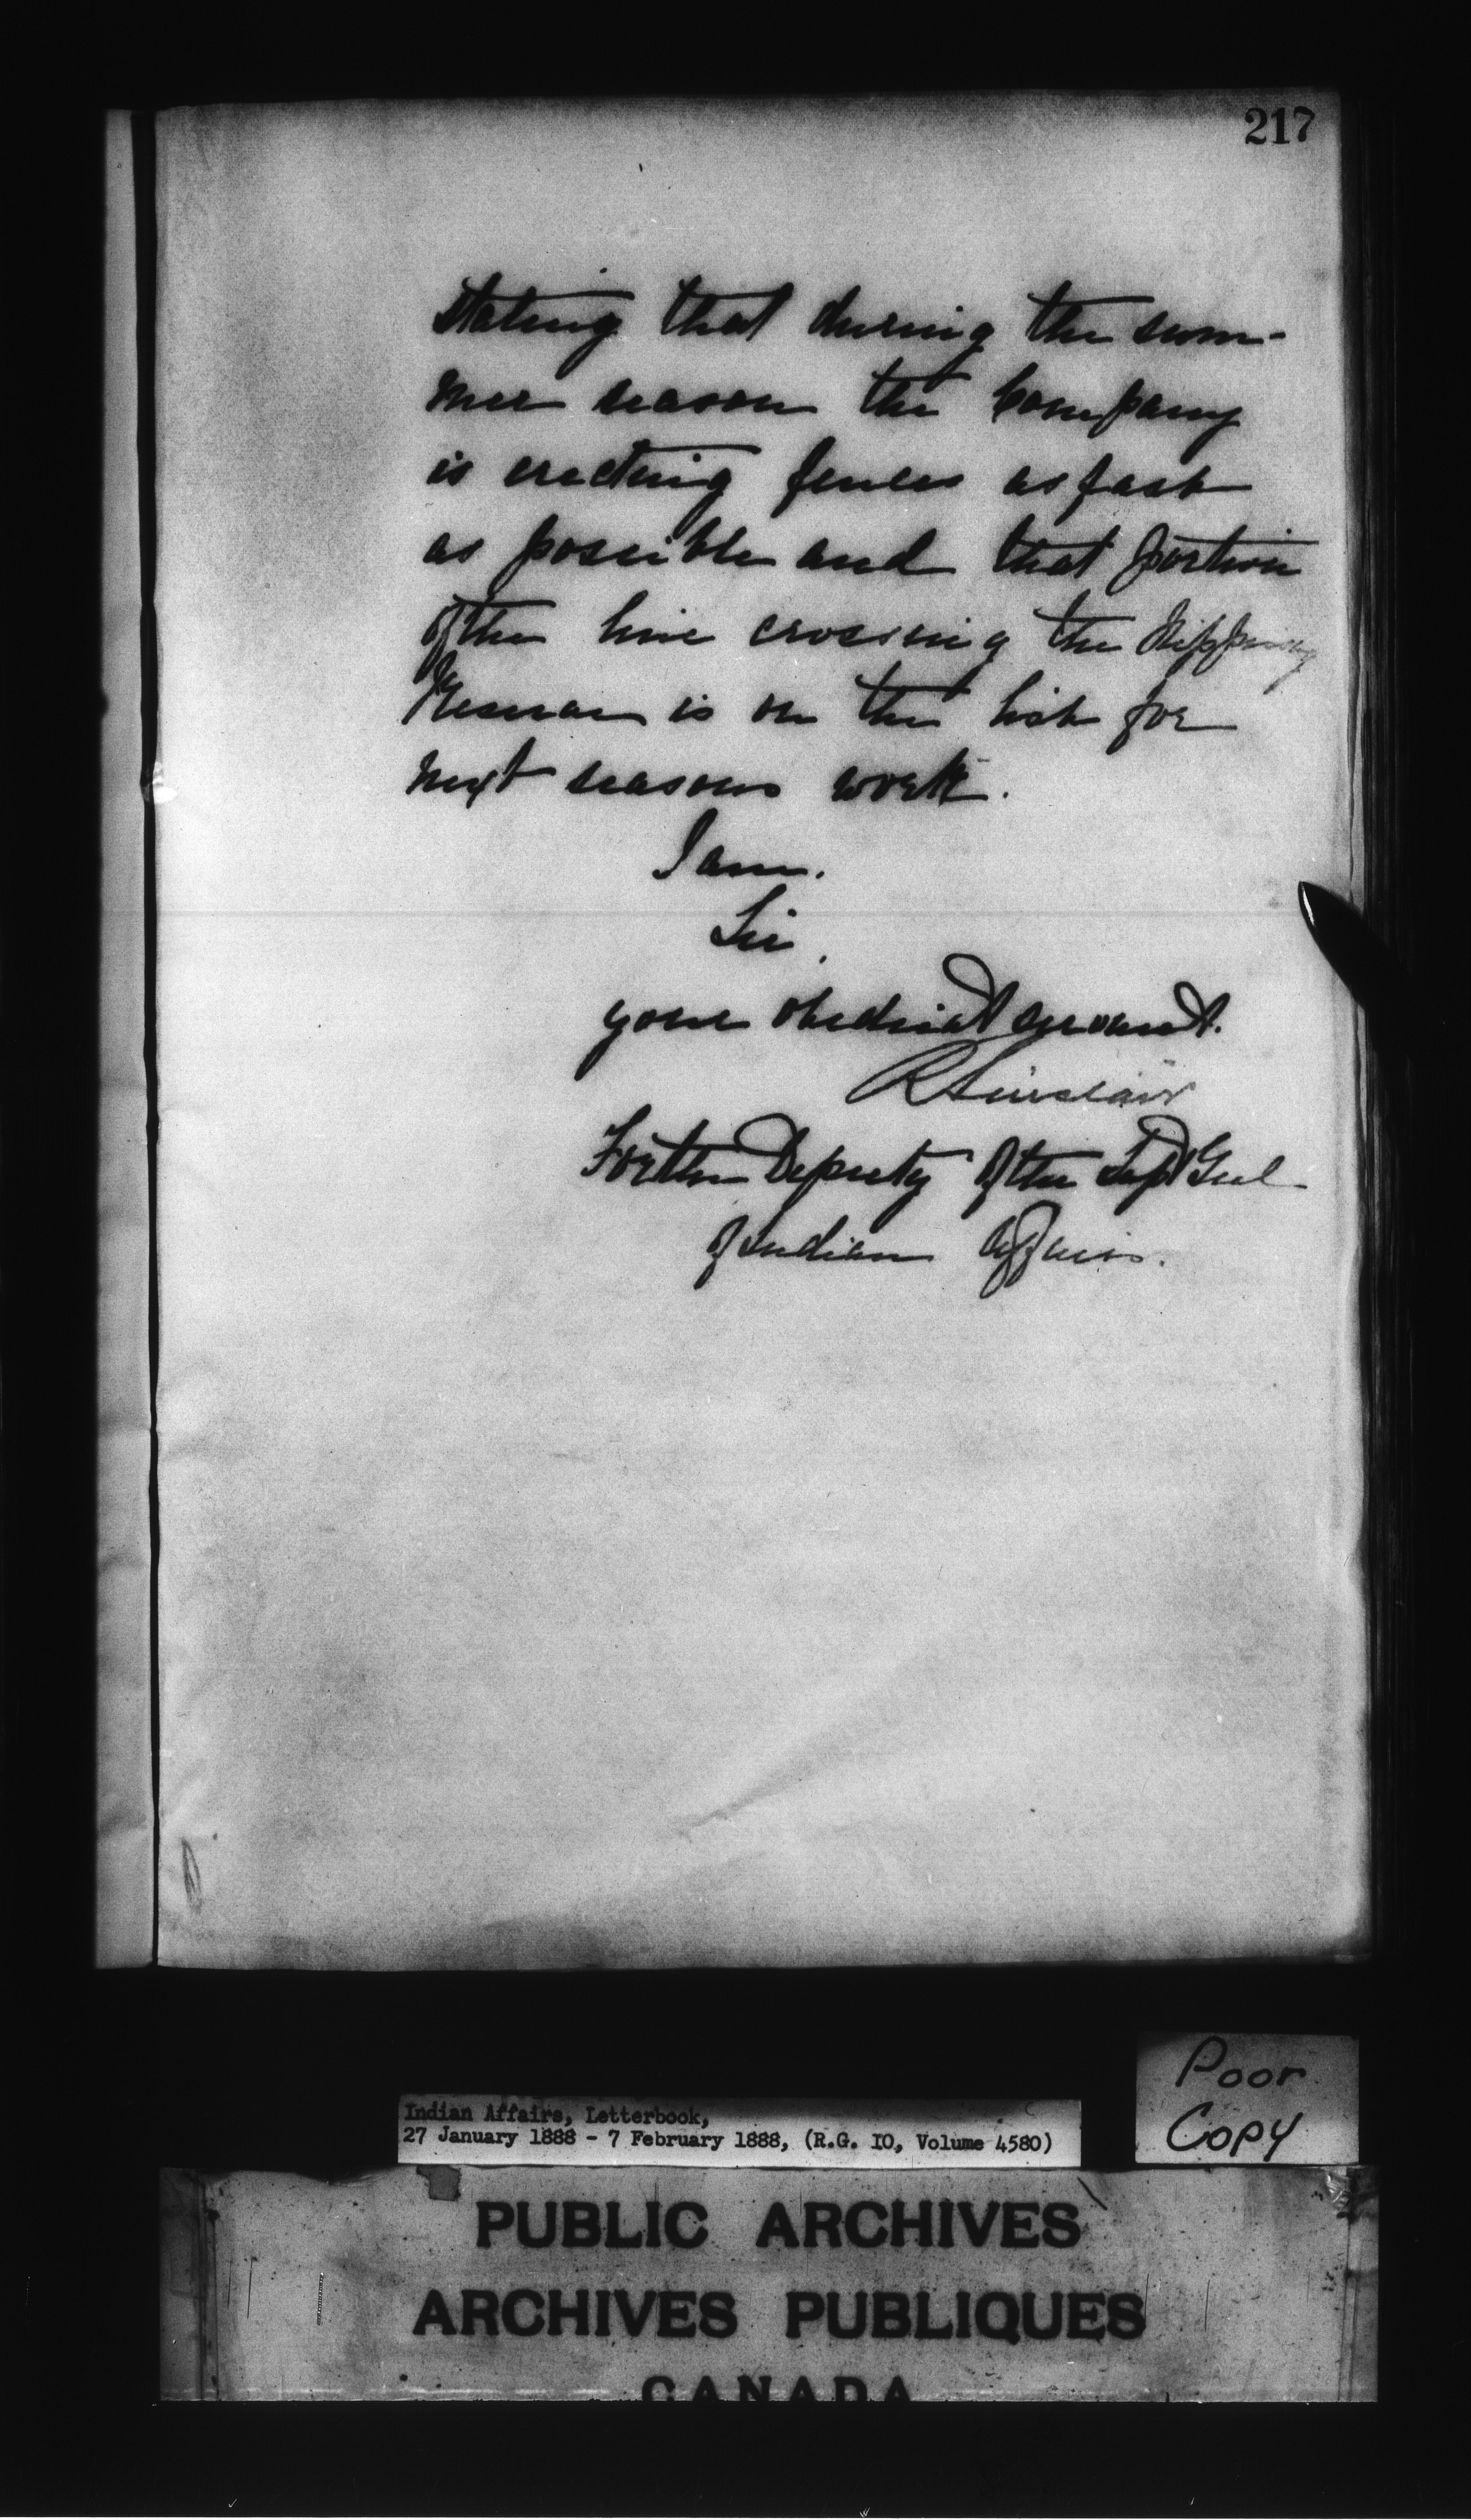 217
stating that during the sum-
mer season the Company
is erecting fences as fast
as possible and that portion
of the line crossing the Nippissing
Reserve is on the list for
next seasons work.
I am.
Sir,
your obedient servant.
R Sinclair
For the Deputy of the Supt Genl
of Indian Affairs.
Poor
Copy
Indian Affairs, Letterbook,
27 January 1888 - 7 February 1888, (R.G. 10, Volume 4580)
PUBLIC ARCHIVES
ARCHIVES PUBLIQUES
CANADA